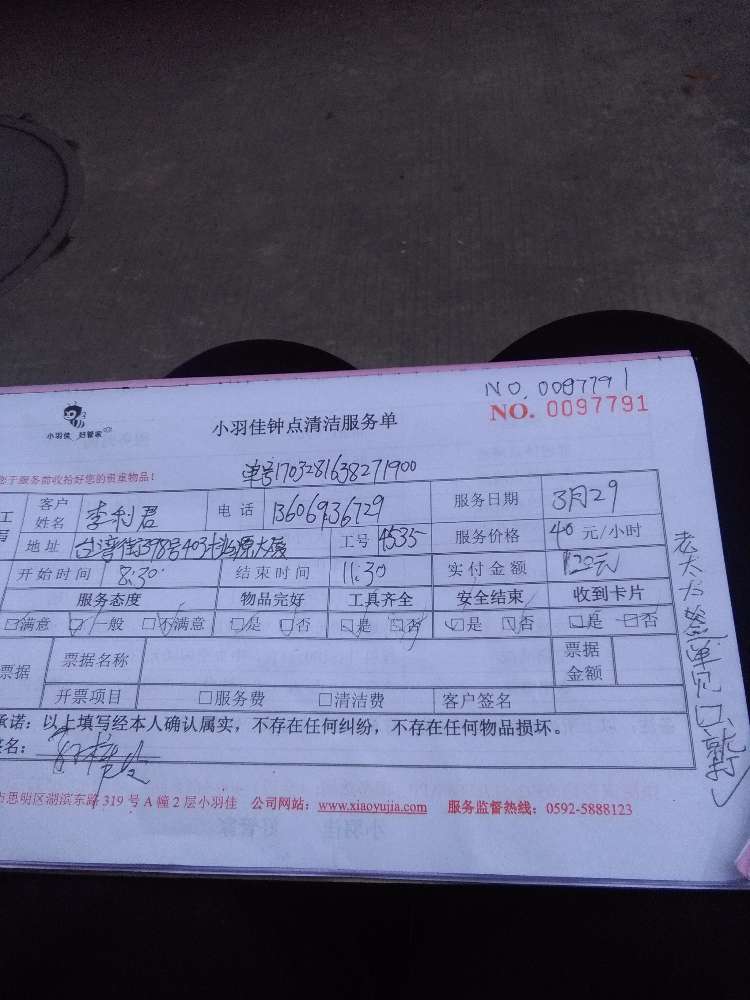 NO. 0097791
小羽佳 好管家
小羽佳钟点清洁服务单
NO. 0097791
您于服务前收拾好您的贵重物品!
单号1703281638271900
客户姓名 李利君 电 话 13606936729 服务日期 3月29
地址 台湾街378号403 大厦 工号 4535 服务价格 40 元/小时
开始时间 8:30 结束时间 11:30 实付金额 120元
服务态度 物品完好 工具齐全 安全结束 收到卡片
□满意 □一般 □不满意 □是 □否 □是 □否 □是 □否 □是 □否
票据 票据名称 票据金额
开票项目 □服务费 □清洁费 客户签名
承诺:以上填写经本人确认属实,不存在任何纠纷,不存在任何物品损坏。
签名:
市思明区湖滨东路 319 号 A 幢 2 层小羽佳 公司网站:www.xiaoyujia.com 服务监督热线:0592-5888123
老太太签单见口就打